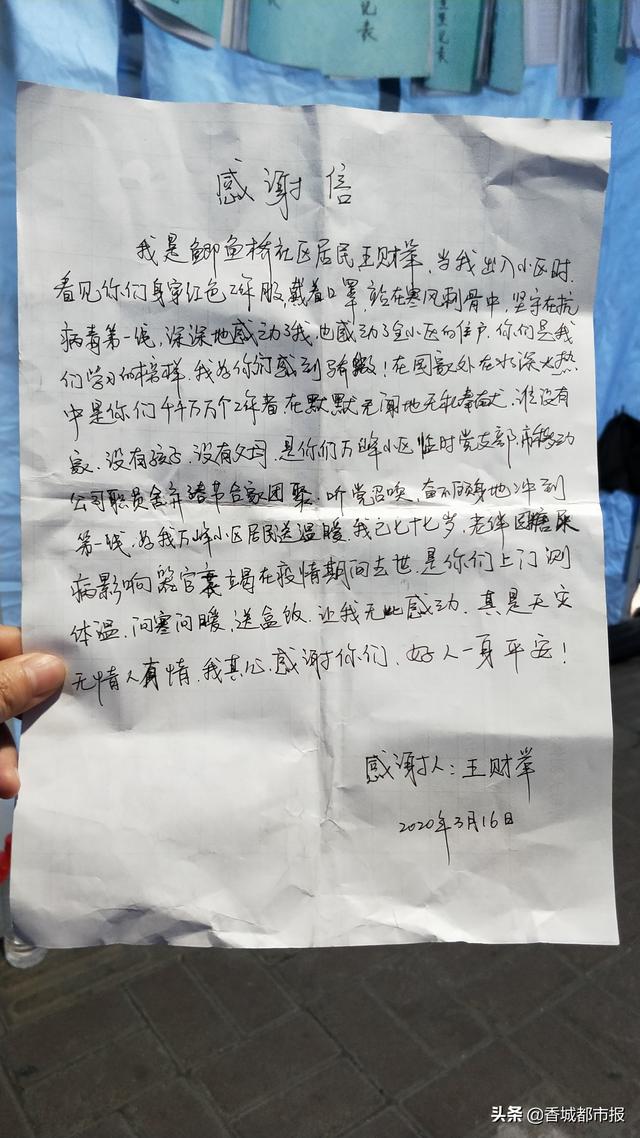 感谢信
我是鲫鱼桥社区居民王财举，当我出入小区时，
看见你们身穿红色工作服，戴着口罩，站在寒风刺骨中，坚守在抗
病毒第一线，深深地感动了我，也感动了全小区的住户，你们是我
们学习的榜样，我为你们感到骄傲！在国家处在水深火热
中是你们千千万万个工作者在默默无闻地无私奉献，谁没有
家、没有孩子、没有父母，是你们万峰小区临时党支部、市移动
公司职员舍弃春节合家团聚，听党召唤，奋不顾身地冲到
第一线，为我万峰小区居民送温暖，我已七十七岁，老伴因糖尿
病影响器官衰竭在疫情期间去世，是你们上门测
体温、问寒问暖，送盒饭，让我无比感动，真是天灾
无情人有情，我真心感谢你们，好人一身平安！
感谢人：王财举
2020年3月16日
头条@香城都市报